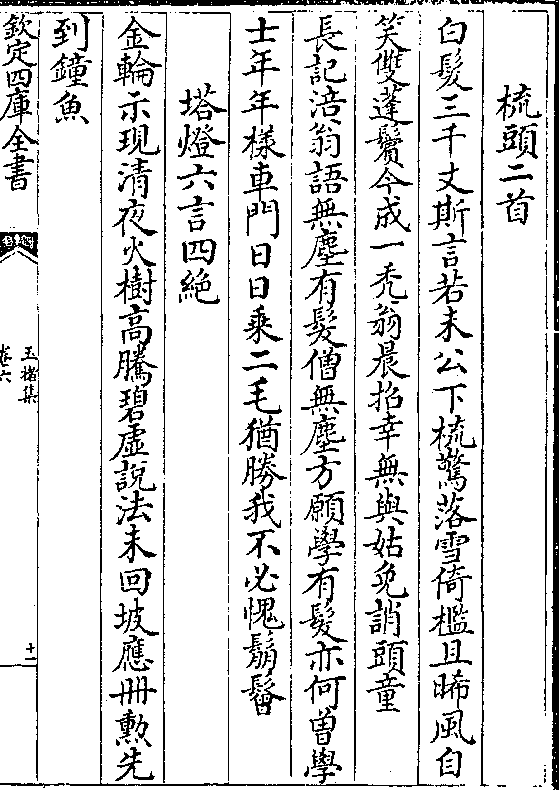 梳頭二首
白髮三千丈斯言若未公下梳驚落雪倚檻且晞風自
笑雙蓬鬢今成一禿翁晨招幸無與姑免誚頭童
長記涪翁語無塵有髮僧無塵方願學有髮亦何曽學
士年年樣車門日日乘二毛猶勝我不必愧鬅鬙
塔燈六言四絶
金輪示現清夜火樹高騰碧虛說法未回坡應册勲先
到鐘魚
欽定四庫全書
玉楮集
卷六
十二